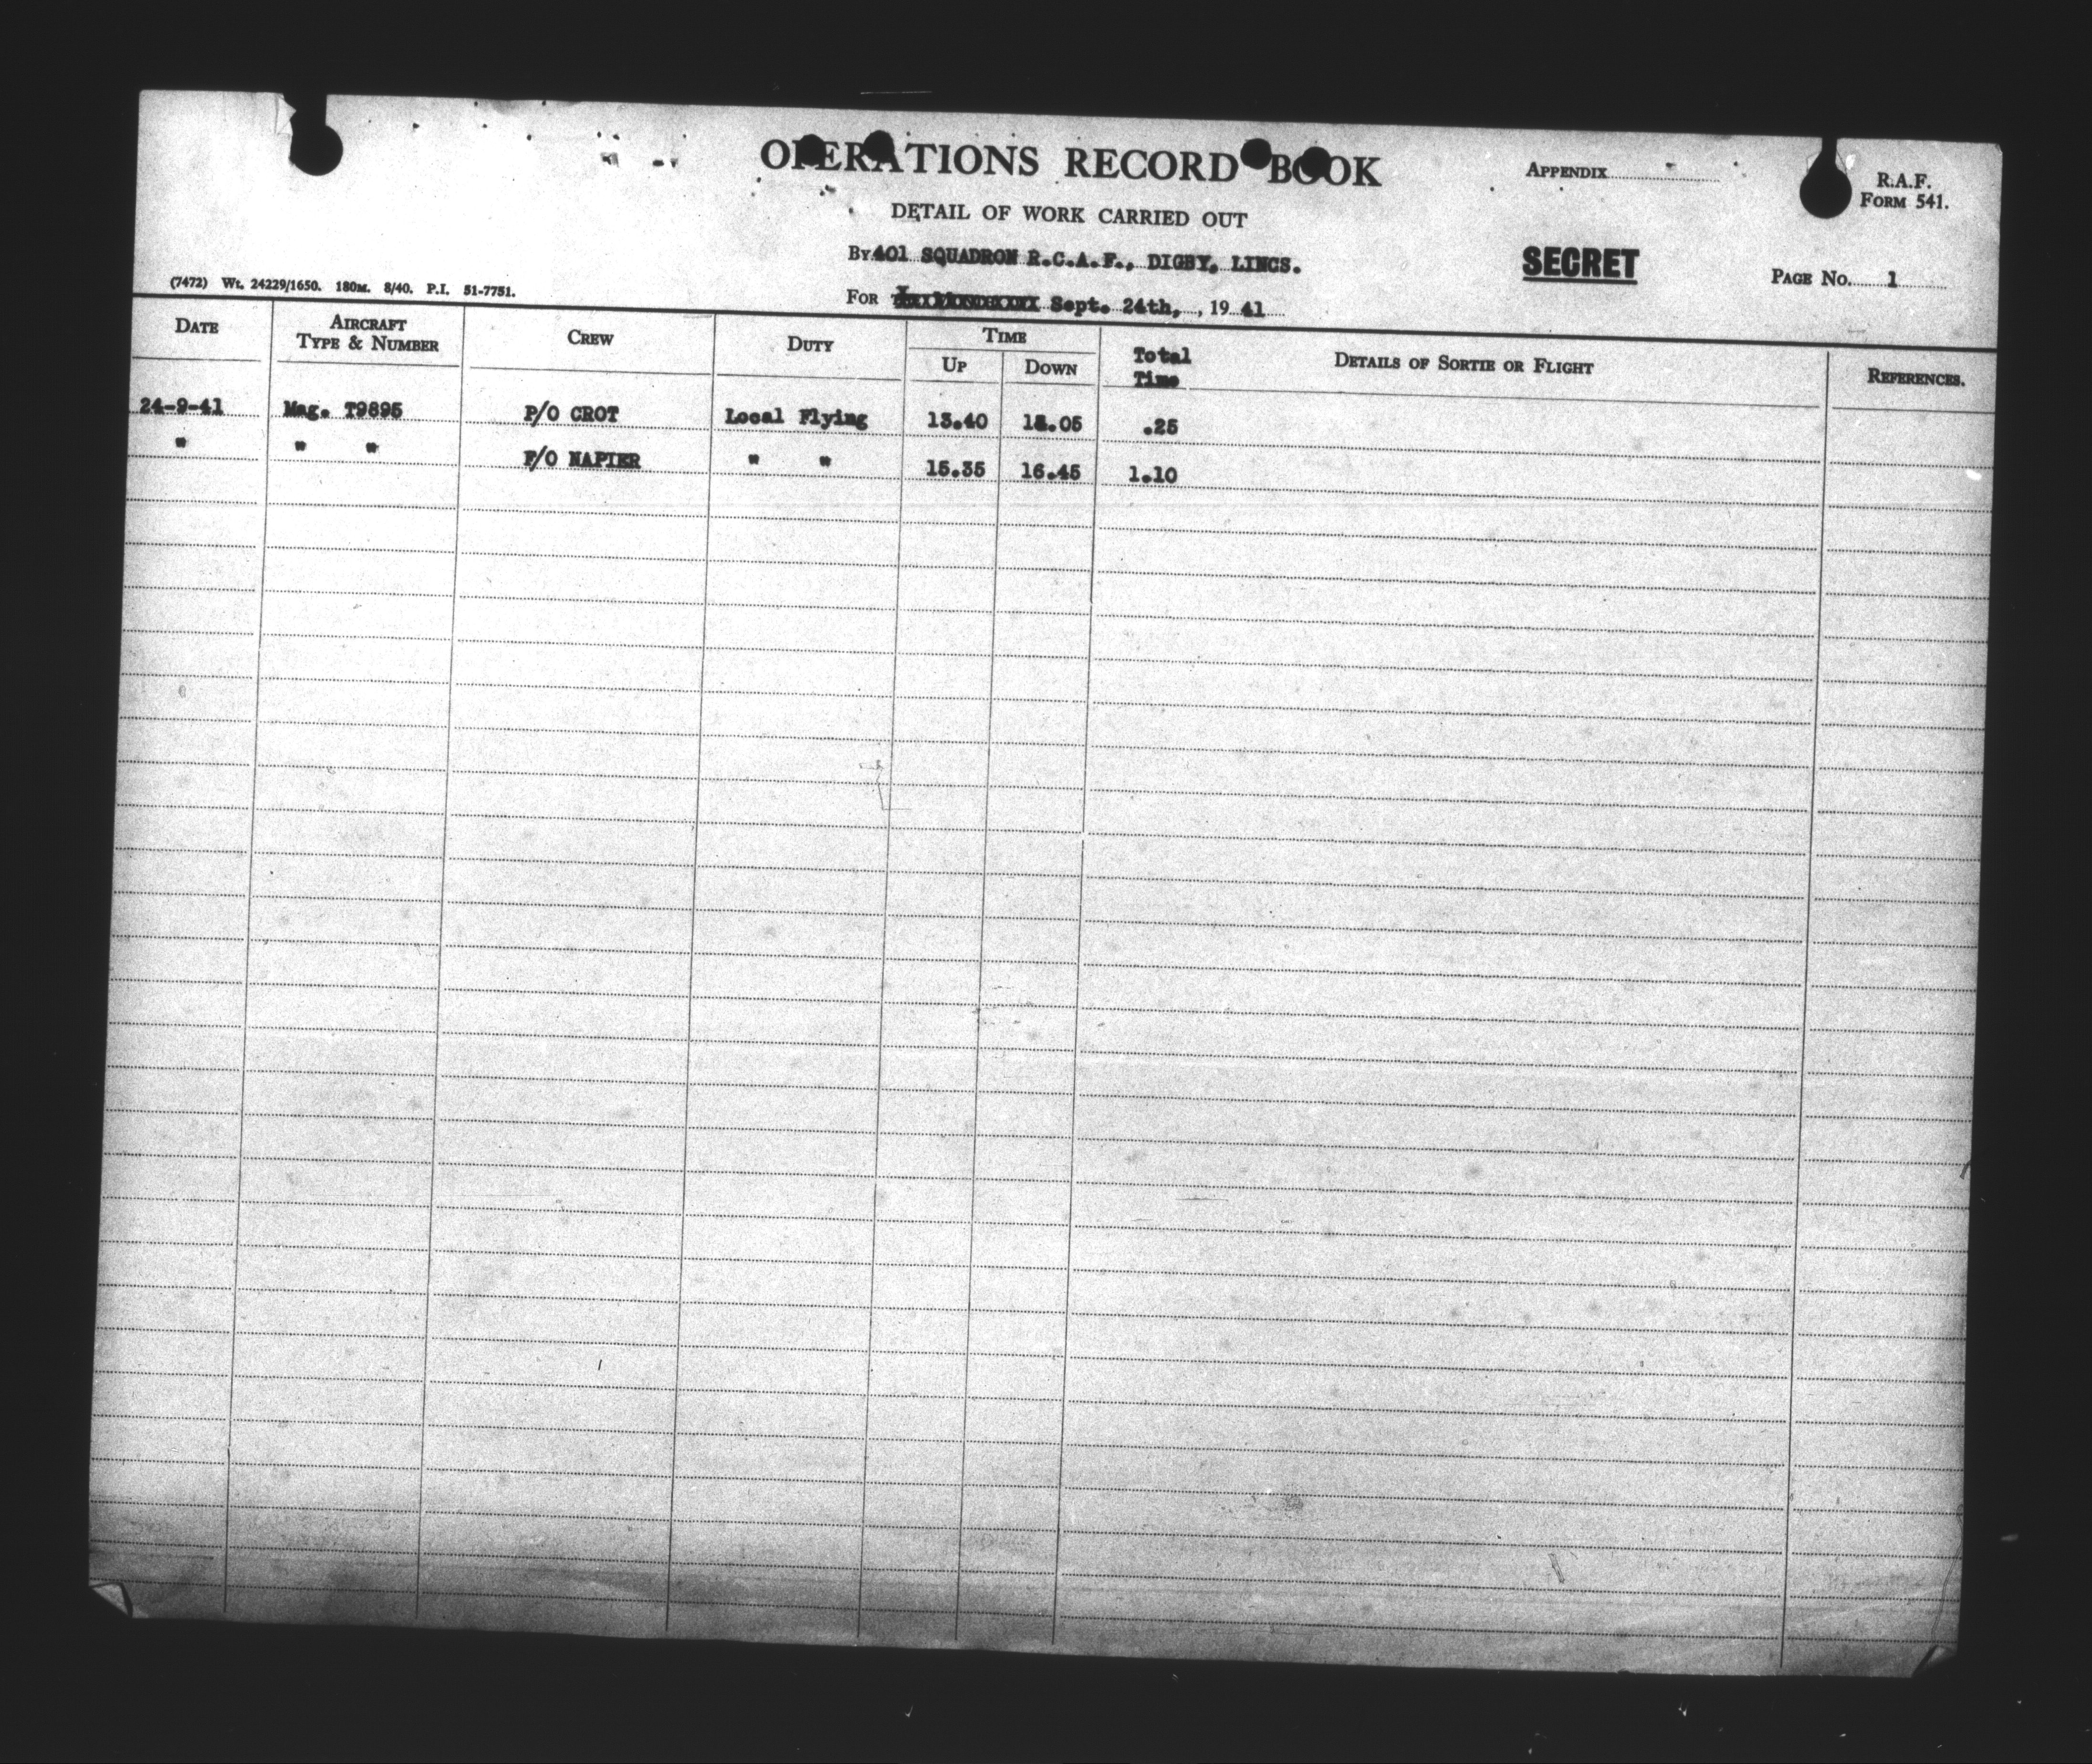 OPERATIONS RECORD BOOK
APPENDIX
R.A.F.
FORM 541.
DETAIL OF WORK CARRIED OUT
By 401 SQUADRON R.C.A.F., DIGBY, LINCS.
SECRET
PAGE No. 1
(7472) Wt. 24229/1650. 180M. 8/40. P.I. 51-7751.
FOR Sept. 24th, , 19 41
DATE AIRCRAFT TYPE & NUMBER CREW DUTY TIME UP DOWN Total Time DETAILS OF SORTIE OR FLIGHT REFERENCES.
24-9-41 Mag. T9895 P/O CROT Local Flying 13.40 .25
" " " F/O NAPIER " " 15.35 16.45 1.10